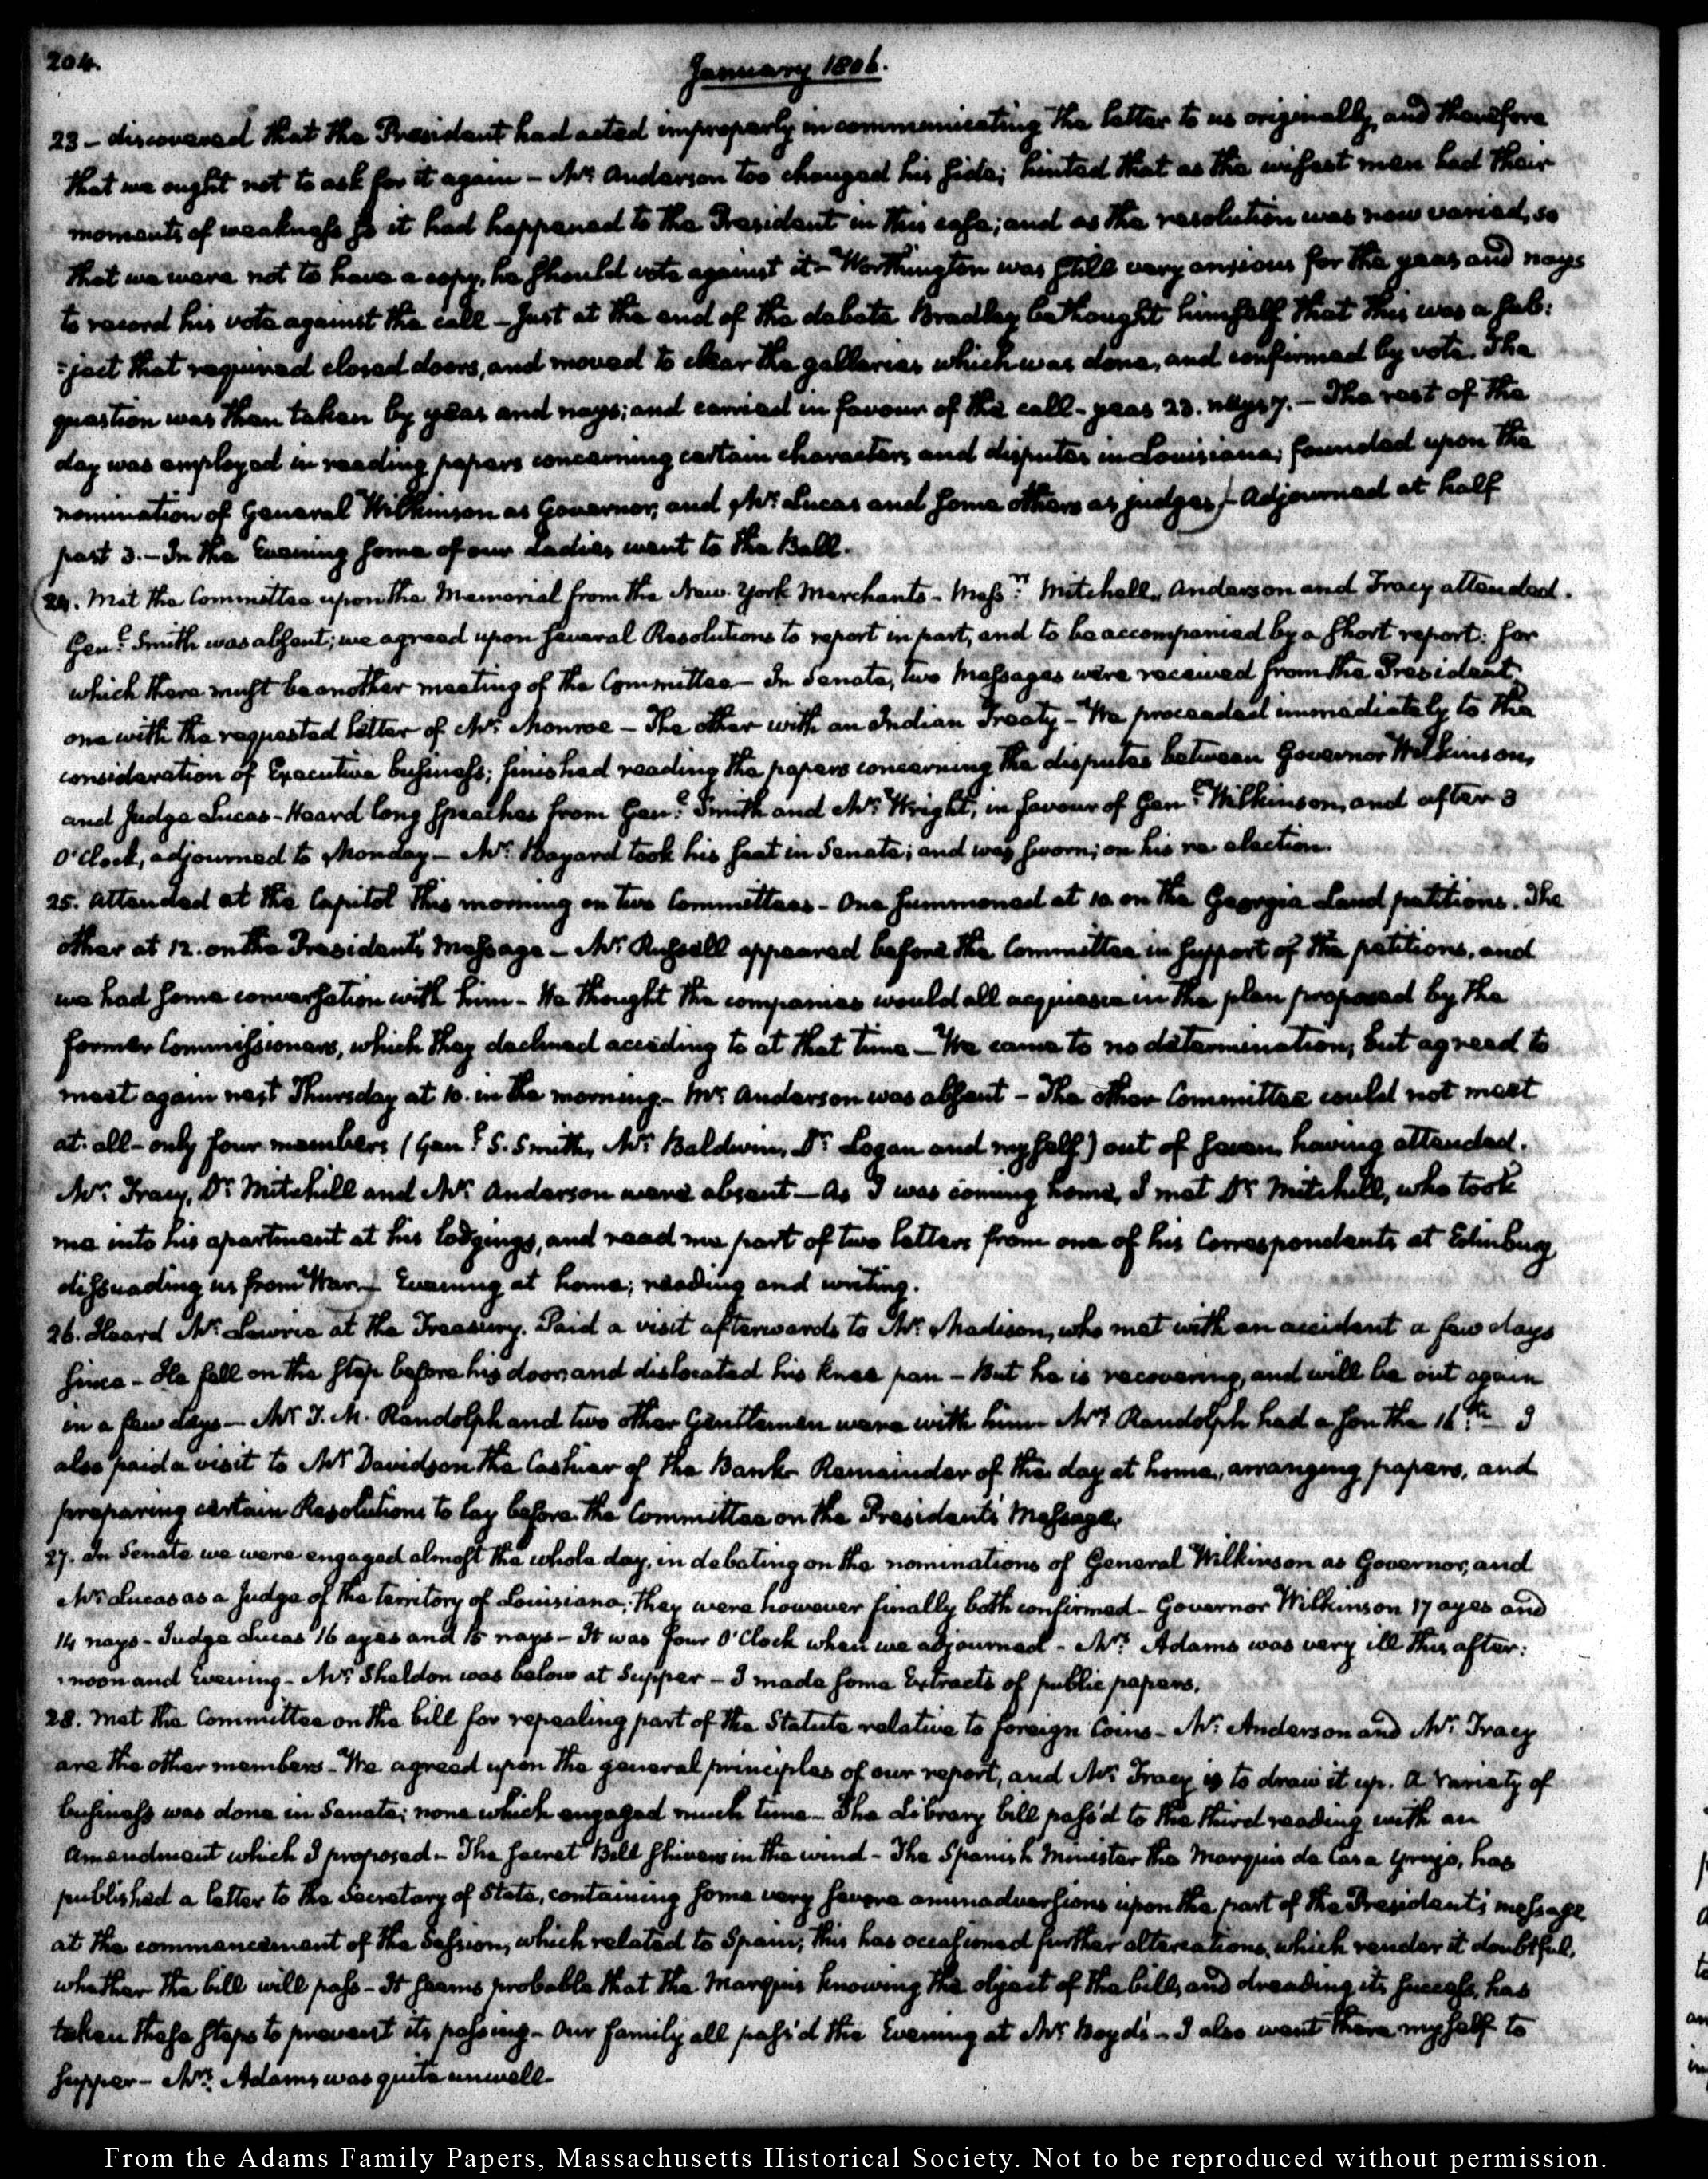 204.
January 1806.
23 – discovered that the President had acted improperly in communicating the letter to us originally, and therefore
that we ought not to ask for it again – Mr. Anderson too changed his side; hinted that as the wisest men had their
moments of weakness so it had happened to the President in this case; and as the resolution was now varied, so
that we were not to have a copy, he should vote against it – Worthington was still very anxious for the yeas and nays
to record his vote against the call – Just at the end of the debate Bradley bethought himself that this was a sub:
:ject that required closed doors, and moved to clear the galleries which was done, and confirmed by vote. The
question was then taken by yeas and nays; and carried in favour of the call – yeas 23. nays 7. – The rest of the
day was employed in reading papers concerning certain characters and disputes in Louisiana; founded upon the
nomination of General Wilkinson as Governor, and Mr. Lucas and some others as judges) – Adjourned at half
past 3. – In the Evening some of our Ladies went to the Ball.
24. Met the Committee upon the Memorial from the New York Merchants – Messrs. Mitchell, Anderson and Tracy attended.
Genl. Smith was absent; we agreed upon several Resolutions to report in part, and to be accompanied by a short report: for
which there must be another meeting of the Committee – In Senate, two Messages were received from the President,
one with the requested letter of Mr. Monroe – The other with an Indian Treaty – We proceeded immediately to the
consideration of Executive business; finished reading the papers concerning the disputes between Governor Wilkinson,
and Judge Lucas – Heard long speeches from Genl. Smith and Mr. Wright, in favour of Genl. Wilkinson, and after 3
O'Clock, adjourned to Monday – Mr. Bayard took his seat in Senate; and was sworn; on his re election.
25. Attended at the Capitol this morning on two Committees – One summoned at 10 on the Georgia Land petitions. The
other at 12. on the Presidents Message – Mr. Russell appeared before the Committee in support of the petitions, and
we had some conversation with him – He thought the companies would all acquiesce in the plan proposed by the
former Commissioners, which they declined acceding to at that time – We came to no determination; but agreed to
meet again next Thursday at 10. in the morning – Mr. Anderson was absent – The other Committee could not meet
at all – only four members (Genl. S. Smith, Mr. Baldwin, Dr. Logan and myself) out of seven, having attended.
Mr. Tracy, Dr. Mitchill and Mr. Anderson were absent – As I was coming home, I met Dr. Mitchill, who took
me into his apartment at his lodgings, and read me part of two letters from one of his Correspondents at Edinburg
dissuading us from War – Evening at home; reading and writing.
26. Heard Mr. Lowrie at the Treasury. Paid a visit afterwards to Mr. Madison, who met with an accident a few days
since – He fell on the step before his door and dislocated his knee pan – But he is recovering, and will be out again
in a few days – Mr. T. M. Randolph and two other Gentlemen were with him – Mrs. Randolph had a son the 16th – I
also paid a visit to Mr. Davidson the Cashier of the Bank – Remainder of the day at home, arranging papers, and
preparing certain Resolutions to lay before the Committee on the Presidents' Message.
27. In Senate we were engaged almost the whole day, in debating on the nominations of General Wilkinson as Governor, and
Mr. Lucas as a Judge of the territory of Louisiana; they were however finally both confirmed – Governor Wilkinson 17 ayes and
14 nays – Judge Lucas 16 ayes and 15 nays – It was four O'Clock when we adjourned – Mrs. Adams was very ill this after:
:noon and Evening – Mr. Sheldon was below at Supper – I made some Extracts of public papers.
28. Met the Committee on the bill for repealing part of the Statute relative to foreign Coins – Mr. Anderson and Mr. Tracy
are the other members – We agreed upon the general principles of our report, and Mr. Tracy is to draw it up. A variety of
business was done in Senate; none which engaged much time – The Library bill pass'd to the third reading with an
Amendment which I proposed – The secret Bill shivers in the wind – The Spanish Minister the Marquis de Casa Yrujo, has
published a letter to the Secretary of State, containing some very severe animadversions upon the part of the President's message
at the commencement of the Session, which related to Spain; this has occasioned further altercations, which render it doubtful,
whether the bill will pass – It seems probable that the Marquis knowing the object of the bill, and dreading its success, has
taken these steps to prevent its passing – Our family all pass'd the Evening at Mrs. Boyd's – I also went there myself to
supper – Mrs. Adams was quite unwell –
From the Adams Family Papers, Massachusetts Historical Society. Not to be reproduced without permission.